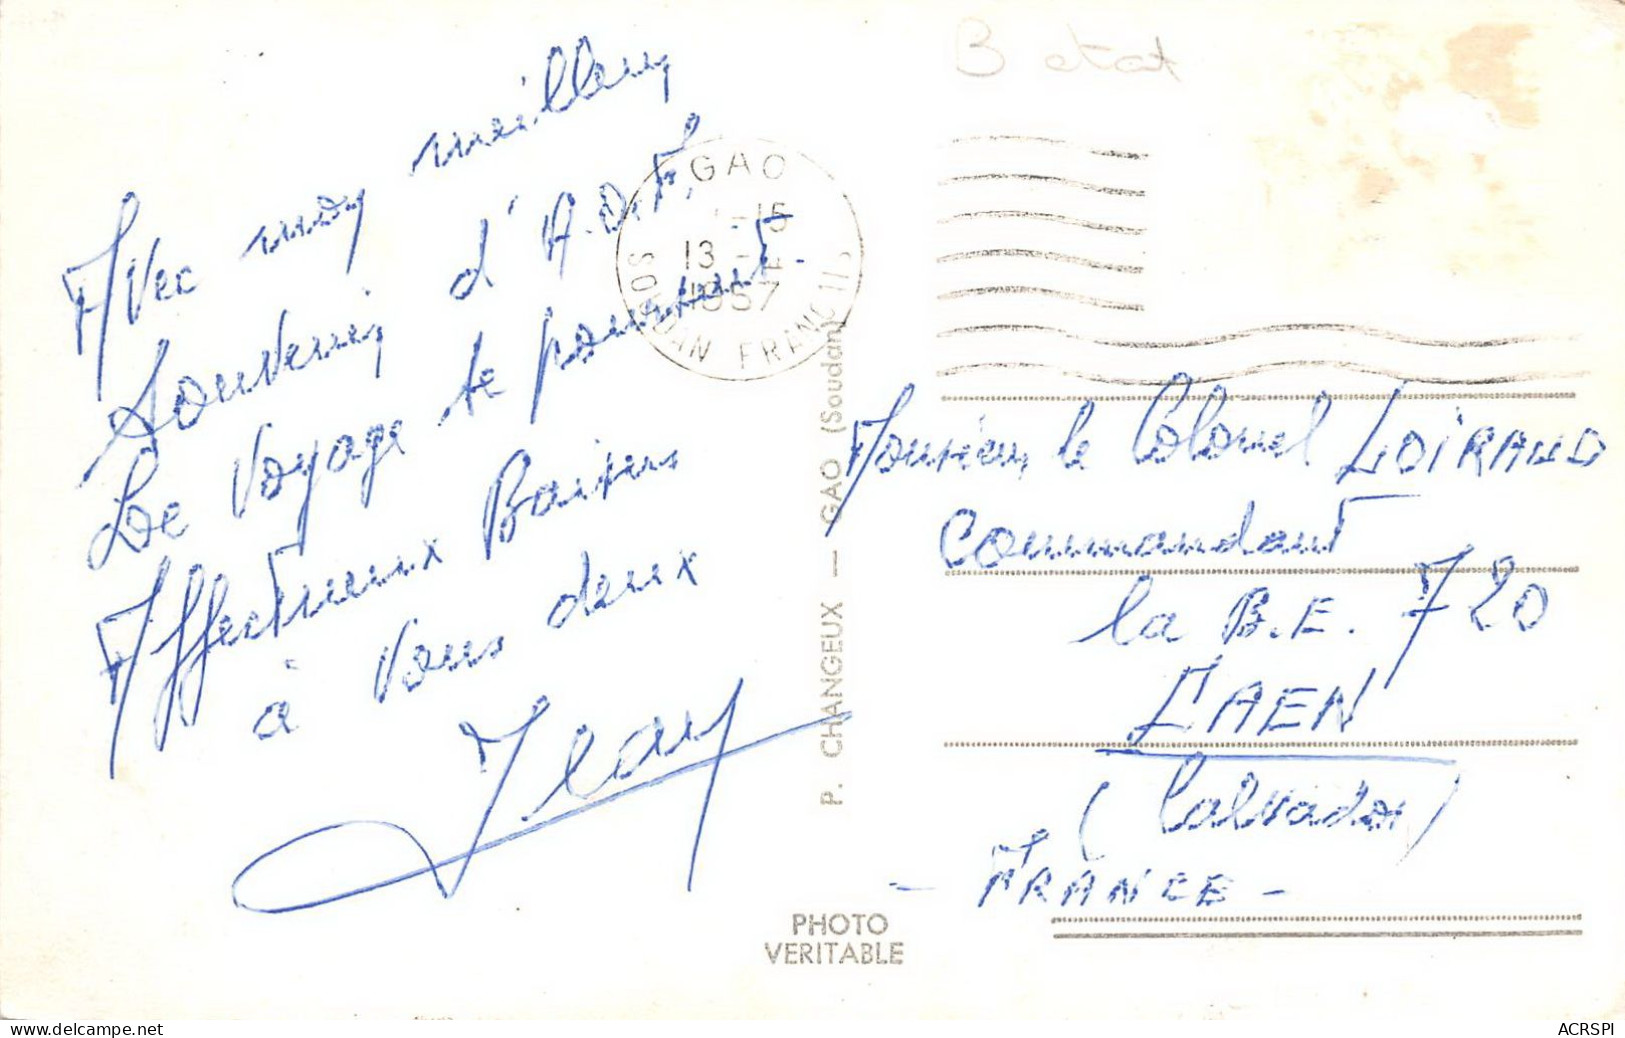 B etat
Avec mes meilleurs
Souvenirs d'A.O.F.
Le Voyage se poursuit.
Affectueux Baisers
à vous deux
Jean
GAO
-15
13 -
1957
SOUDAN FRANCAIS
P. CHANGEUX — GAO (Soudan)
PHOTO
VERITABLE
Monsieur le Colonel LOIRAUD
Commandant
la B.E. 720
CAEN
(Calvados)
- FRANCE -
www.delcampe.net
ACRSPI